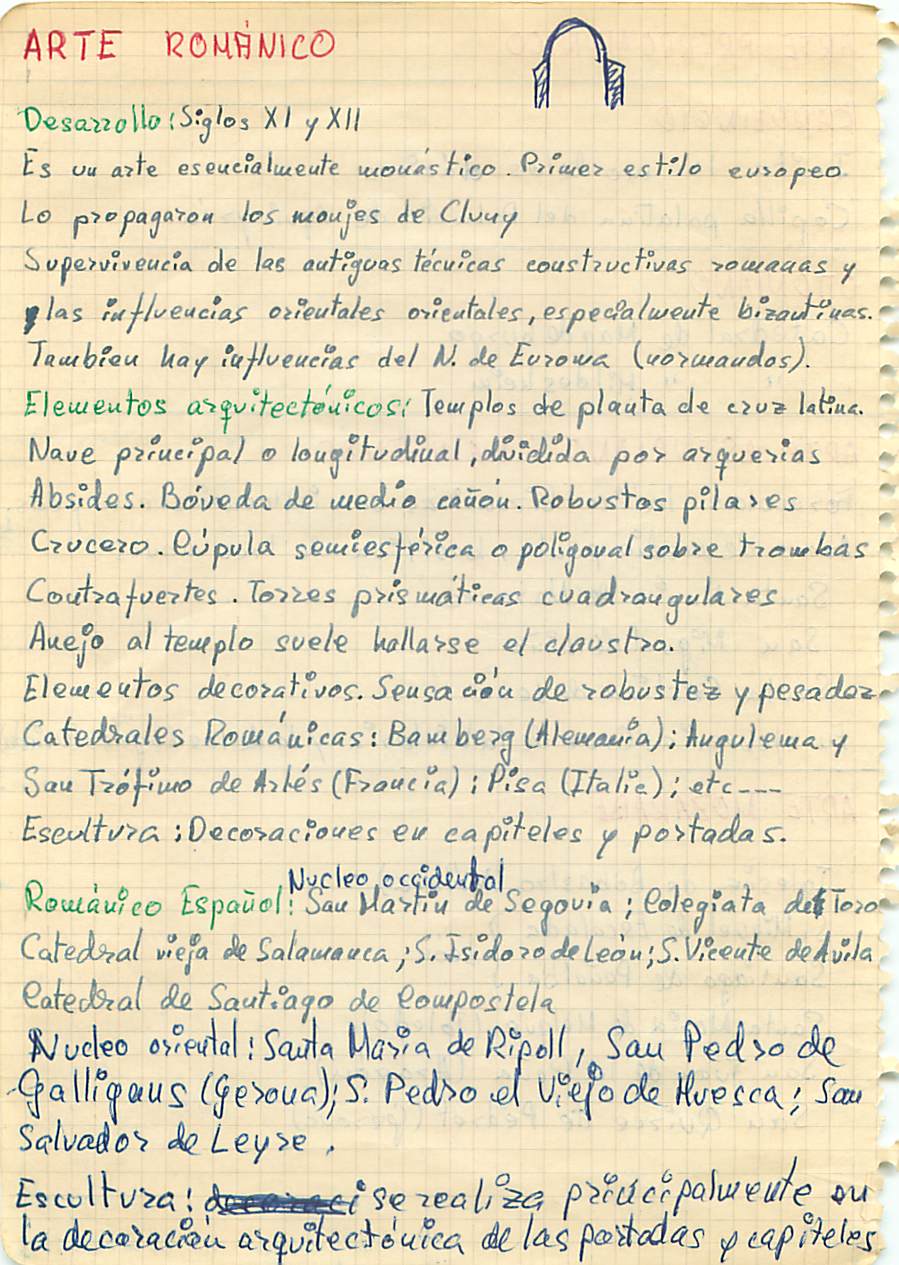 ARTE ROMÁNICO
Desarrollo: Siglos XI y XII
Es un arte esencialmente monástico. Primer estilo europeo.
Lo propagaron los monjes de Cluny
Supervivencia de las antiguas técnicas constructivas romanas y
las influencias orientales orientales, especialmente bizantinas.
Tambien hay influencias del N. de Eurowa (normandos).
Elementos arquitectónicos: Templos de planta de cruz latina.
Nave principal o longitudinal, dividida por arquerias
Absides. Bóveda de medio cañón. Robustos pilares
Crucero. Cúpula semiesférica o poligonal sobre trombas
Contrafuertes. Torres prismáticas cuadrangulares
Anejo al templo suele hallarse el claustro.
Elementos decorativos. Sensación de robustez y pesadez
Catedrales Románicas: Bamberg (Alemania); Angulema y
San Trófimo de Arlés (Francia); Pisa (Italia); etc---
Escultura: Decoraciones en capiteles y portadas.
Nucleo occidental
Románico Español: San Martin de Segovia; Colegiata de Toro
Catedral vieja de Salamanca; S. Isidoro de León; S. Vicente de Avila
Catedral de Santiago de Compostela
Nucleo oriental: Santa Maria de Ripoll, San Pedro de
Galligans (Gerona); S. Pedro el Viejo de Huesca; San
Salvador de Leyre.
Escultura: se realiza principalmente en
la decoración arquitectónica de las portadas y capiteles